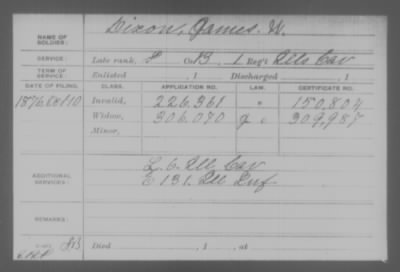 NAME OF SOLDIER: Dixon, James. W.
SERVICE: Late rank, P Co. B, 1 Reg't Ills Cav
TERM OF SERVICE: Enlisted , 1 Discharged , 1
DATE OF FILING. CLASS. APPLICATION NO. LAW. CERTIFICATE NO.
1876 Invalid, 226,361 " 150,804
Widow, 306,070 309,987
Minor,
ADDITIONAL SERVICES: L. 6. Ill Cav
E 131. Ill Inf
REMARKS:
Died , 1 , at